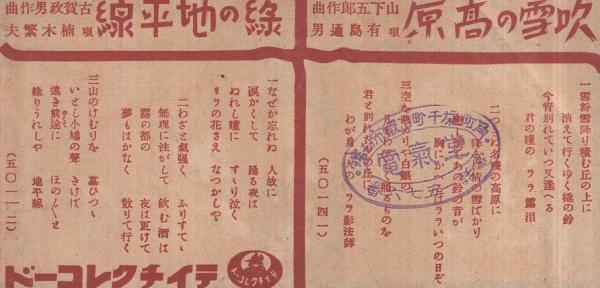 吹雪の高原
山下五郎作曲
唄 有島通男
一雪粉雪降り積む丘の上に
消えて行くゆく橇の鈴
今宵別れていつ又逢へる
君の瞳の ラヽ 露泪
の高原に
雪ばかり
鈴の音が
ララいつの日ぞ
君と別れ
わが身の ララ影法師
(五〇一四一)
緑の地平線
古賀政男作曲
唄 楠木繁夫
一なぜか忘れぬ 人故に
涙かくして 踊る夜は
ぬれし瞳に すゝり泣く
リラの花さえ なつかしや
二わざと氣強く ふりすてゝ
無理に注がして 飲む酒は
霧の都の 夜は更けて
夢もはかなく 散りて行く
三山のけむりを 慕ひつゝ
いとし小鳩の聲 きけば
遠き前途に ほのぼのと
緑りうれしや 地平線
(五〇一一二)
テイチクレコード
テイチクレコード